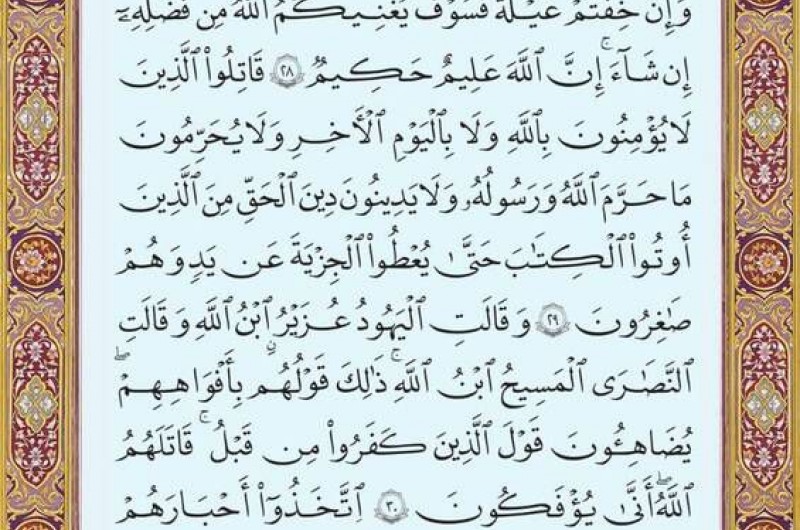 وَإِنْ خِفْتُمْ عَيْلَةً فَسَوْفَ يُغْنِيكُمُ اللَّهُ مِن فَضْلِهِۦٓ
إِن شَآءَ ۚ إِنَّ اللَّهَ عَلِيمٌ حَكِيمٌ ٢٨ قَاتِلُوا۟ الَّذِينَ
لَا يُؤْمِنُونَ بِاللَّهِ وَلَا بِالْيَوْمِ الْأَخِرِ وَلَا يُحَرِّمُونَ
مَا حَرَّمَ اللَّهُ وَرَسُولُهُۥ وَلَا يَدِينُونَ دِينَ الْحَقِّ مِنَ الَّذِينَ
أُوتُوا۟ الْكِتَٰبَ حَتَّىٰ يُعْطُوا۟ الْجِزْيَةَ عَن يَدٍ وَهُمْ
صَٰغِرُونَ ٢٩ وَقَالَتِ الْيَهُودُ عُزَيْرُ ابْنُ اللَّهِ وَقَالَتِ
النَّصَٰرَى الْمَسِيحُ ابْنُ اللَّهِ ۖ ذَٰلِكَ قَوْلُهُم بِأَفْوَاهِهِمْ ۖ
يُضَاهِئُونَ قَوْلَ الَّذِينَ كَفَرُوا۟ مِن قَبْلُ ۚ قَاتَلَهُمُ
اللَّهُ ۖ أَنَّىٰ يُؤْفَكُونَ ٣٠ اِتَّخَذُوٓا۟ أَحْبَارَهُمْ